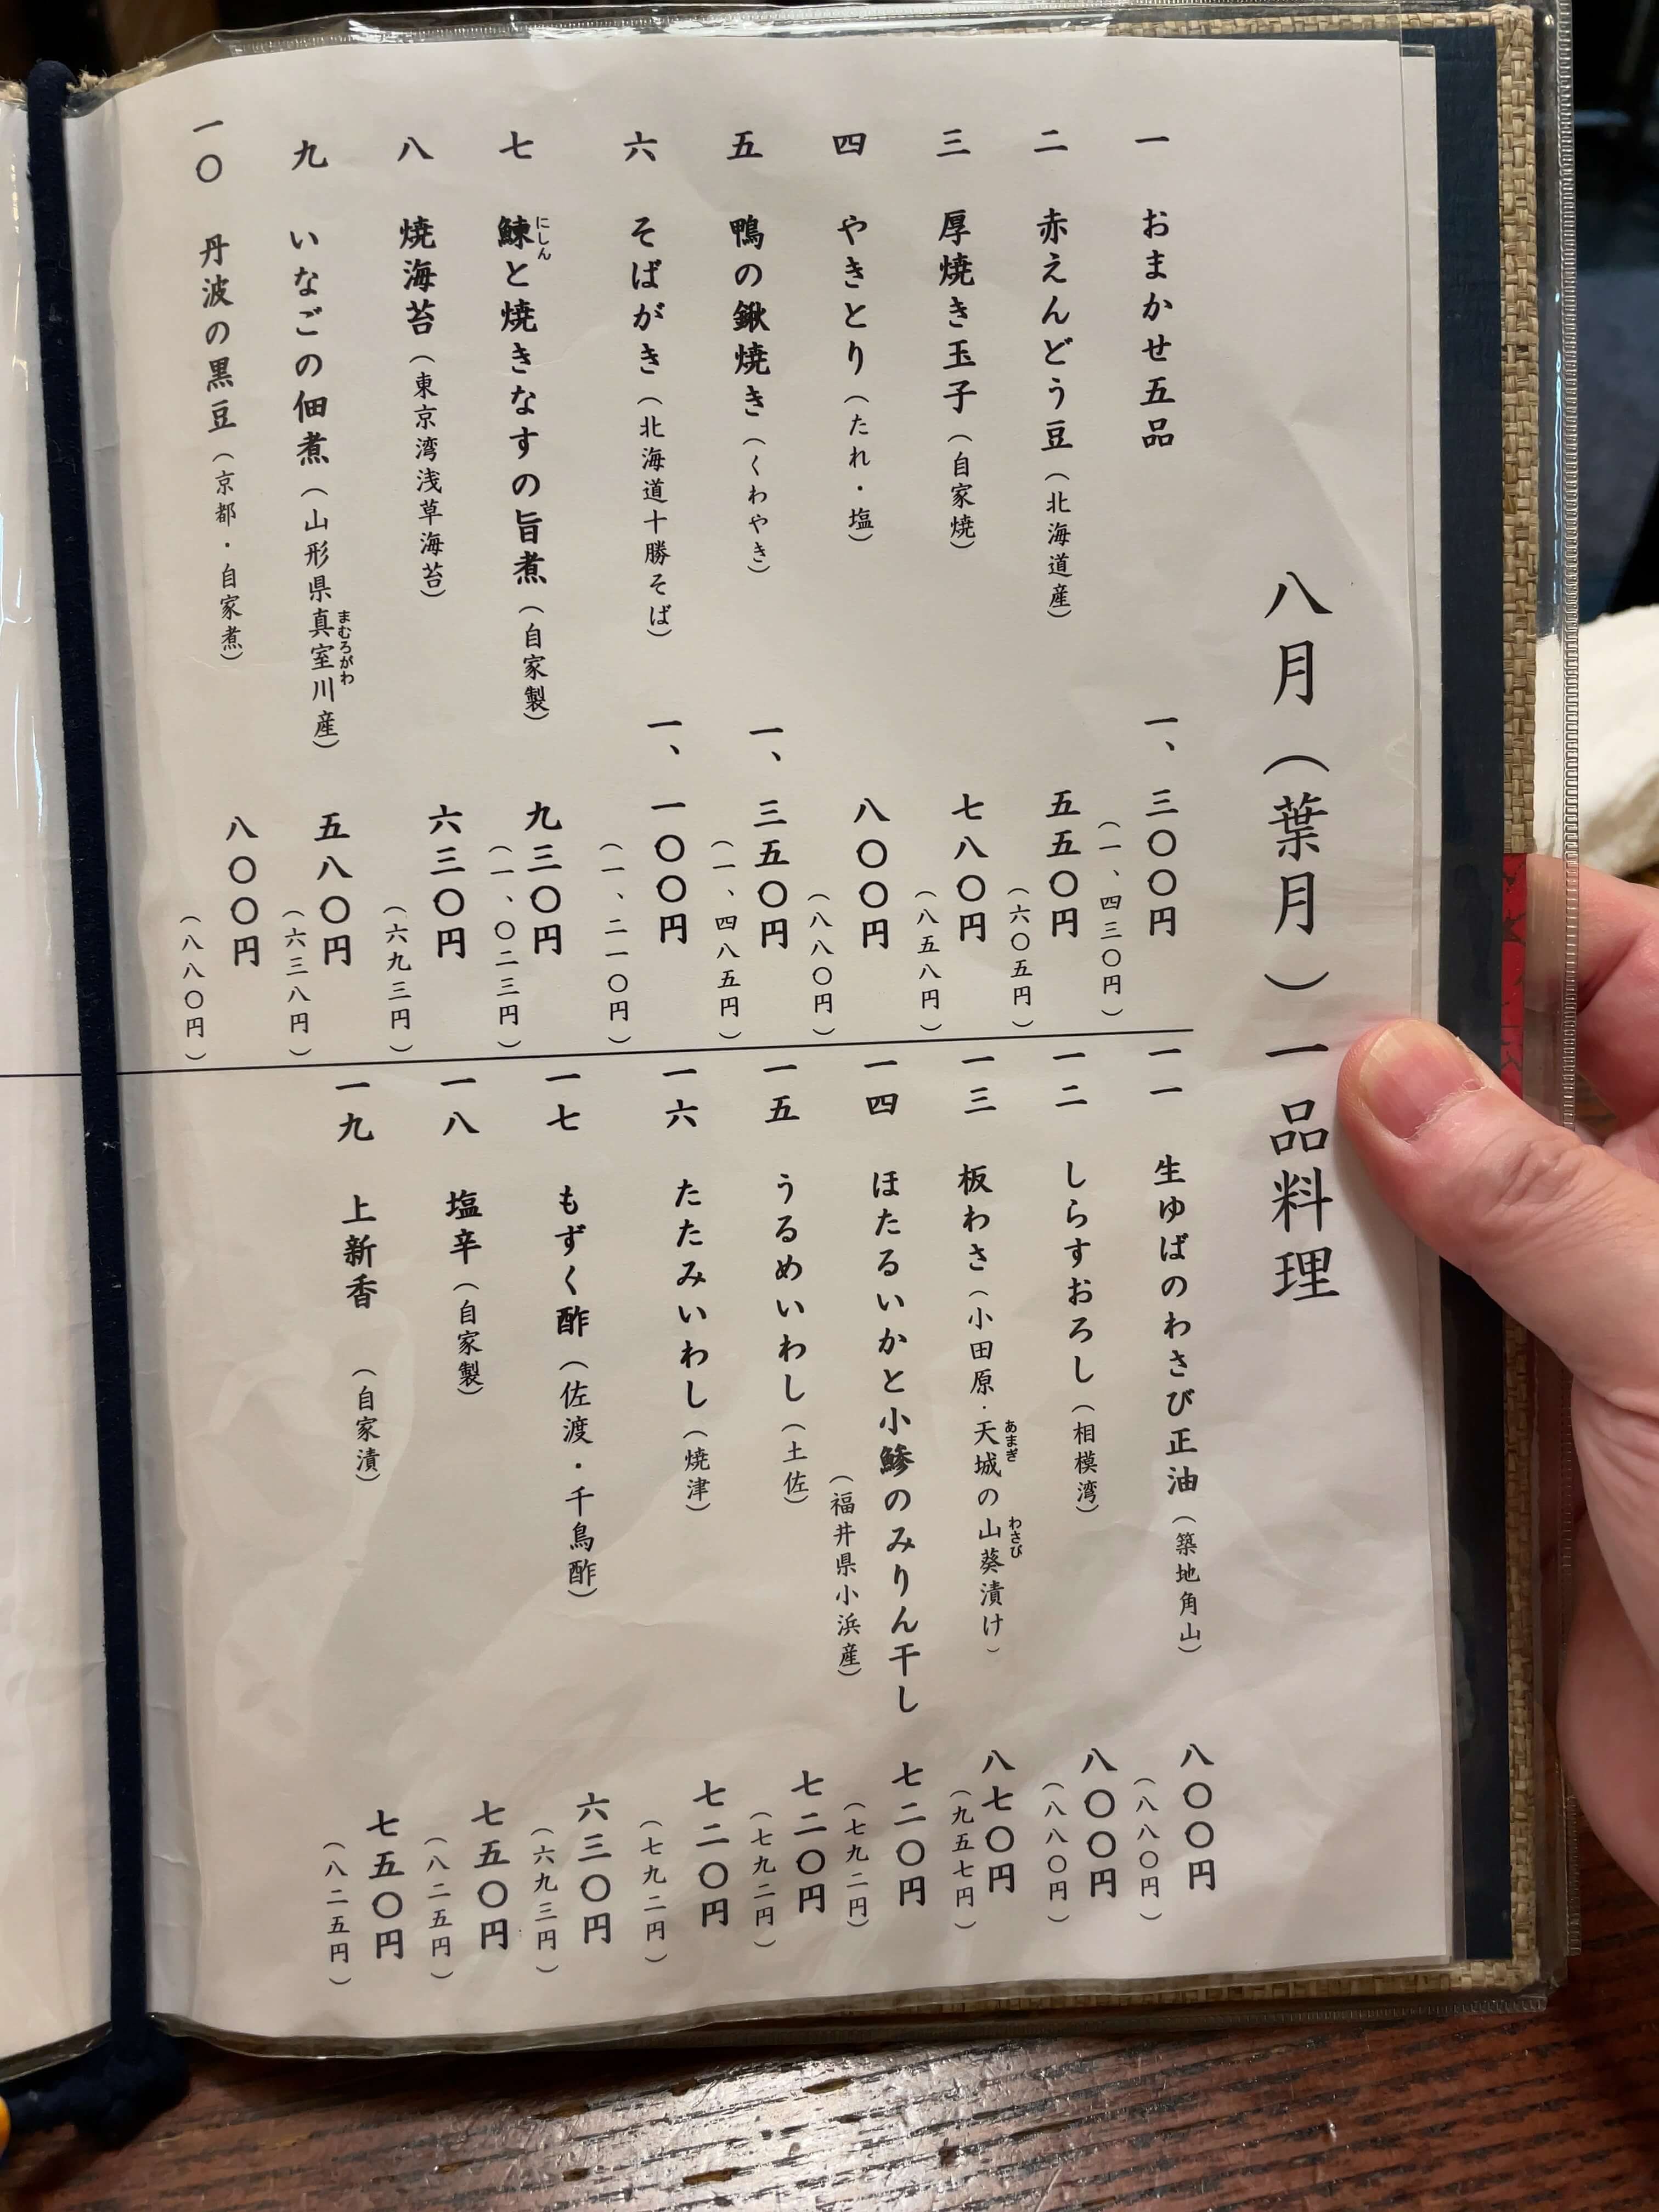 八月（葉月）一品料理
一 おまかせ五品 一、三〇〇円
（一、四三〇円）
二 赤えんどう豆（北海道産） 五五〇円
（六〇五円）
三 厚焼き玉子（自家焼） 七八〇円
（八五八円）
四 やきとり（たれ・塩） 八〇〇円
（八八〇円）
五 鴨の鍬焼き（くわやき） 一、三五〇円
（一、四八五円）
六 そばがき（北海道十勝そば） 一、一〇〇円
（一、二一〇円）
にしん
七 鰊と焼きなすの旨煮（自家製） 九三〇円
（一、〇二三円）
八 焼海苔（東京湾浅草海苔） 六三〇円
（六九三円）
まむろがわ
九 いなごの佃煮（山形県真室川産） 五八〇円
（六三八円）
一〇 丹波の黒豆（京都・自家煮） 八〇〇円
（八八〇円）
一一 生ゆばのわさび正油（築地角山） 八〇〇円
（八八〇円）
一二 しらすおろし（相模湾） 八〇〇円
（八八〇円）
あまぎ わさび
一三 板わさ（小田原・天城の山葵漬け） 八七〇円
（九五七円）
一四 ほたるいかと小鯵のみりん干し 七二〇円
（福井県小浜産） （七九二円）
一五 うるめいわし（土佐） 七二〇円
（七九二円）
一六 たたみいわし（焼津） 七二〇円
（七九二円）
一七 もずく酢（佐渡・千鳥酢） 六三〇円
（六九三円）
一八 塩辛（自家製） 七五〇円
（八二五円）
一九 上新香 （自家漬） 七五〇円
（八二五円）